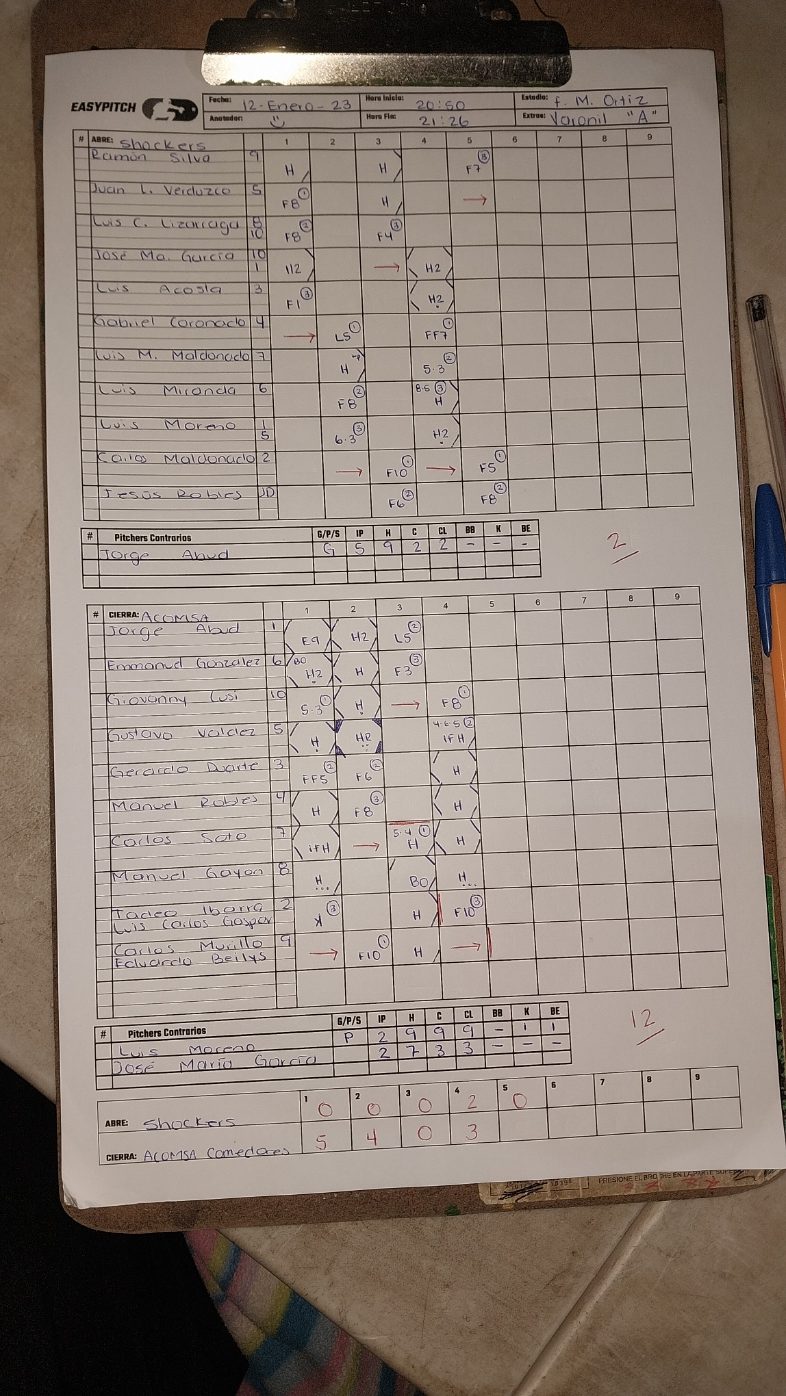 EASYPITCH
Fecha: 12-Enero-23 Hora Inicio: 20:50 Estadio: f. M. Ortiz
Anotador: Hora Fin: 21:26 Extras: Varonil "A"
# ABRE: Shockers 1 2 3 4 5 6 7 8 9
Ramón Silva 9 H H F7 3
Juan L. Verduzco 5 F8 1 H →
Luis C. Lizarraga 8 10 F8 2 F4 3
José Ma. García 10 1 H2 → H2
Luis Acosta 3 F1 3 H2
Gabriel Coronado 4 → L5 1 FF7 1
Luis M. Maldonado 7 H 5.3 2
Luis Miranda 6 F8 2 8-5 3 H
Luis Moreno 1 5 6.3 3 H2
Carlos Maldonado 2 → F10 1 → F5 1
Jesús Robles JD F6 2 F8 2
# Pitchers Contrarios G/P/S IP H C CL BB K BE
Jorge Abud G 5 9 2 2 - - -
2
# CIERRA: ACOMSA 1 2 3 4 5 6 7 8 9
Jorge Abud 1 E9 H2 L5 2
Emmanuel Gonzalez 6 BO H2 H F3 3
Giovanny Lusi 10 5.3 1 H → F8 1
Gustavo Valdez 5 H HR 4-6-5 2 IFH
Gerardo Duarte 3 FF5 2 F6 2 H
Manuel Robles 4 H F8 3 H
Carlos Soto 7 iFH → 5-4 1 H H
Manuel Gayon 8 H BO H
Tadeo Ibarra 2 K 3 H F10 3
Luis Carlos Gaspar
Carlos Murillo 9 → F10 1 H →
Eduardo Beilys
# Pitchers Contrarios G/P/S IP H C CL BB K BE
Luis Moreno P 2 9 9 9 - 1 1
José María García 2 7 3 3 - - -
12
1 2 3 4 5 6 7 8 9
ABRE: Shockers 0 0 0 2 0
CIERRA: ACOMSA Comedores 5 4 0 3